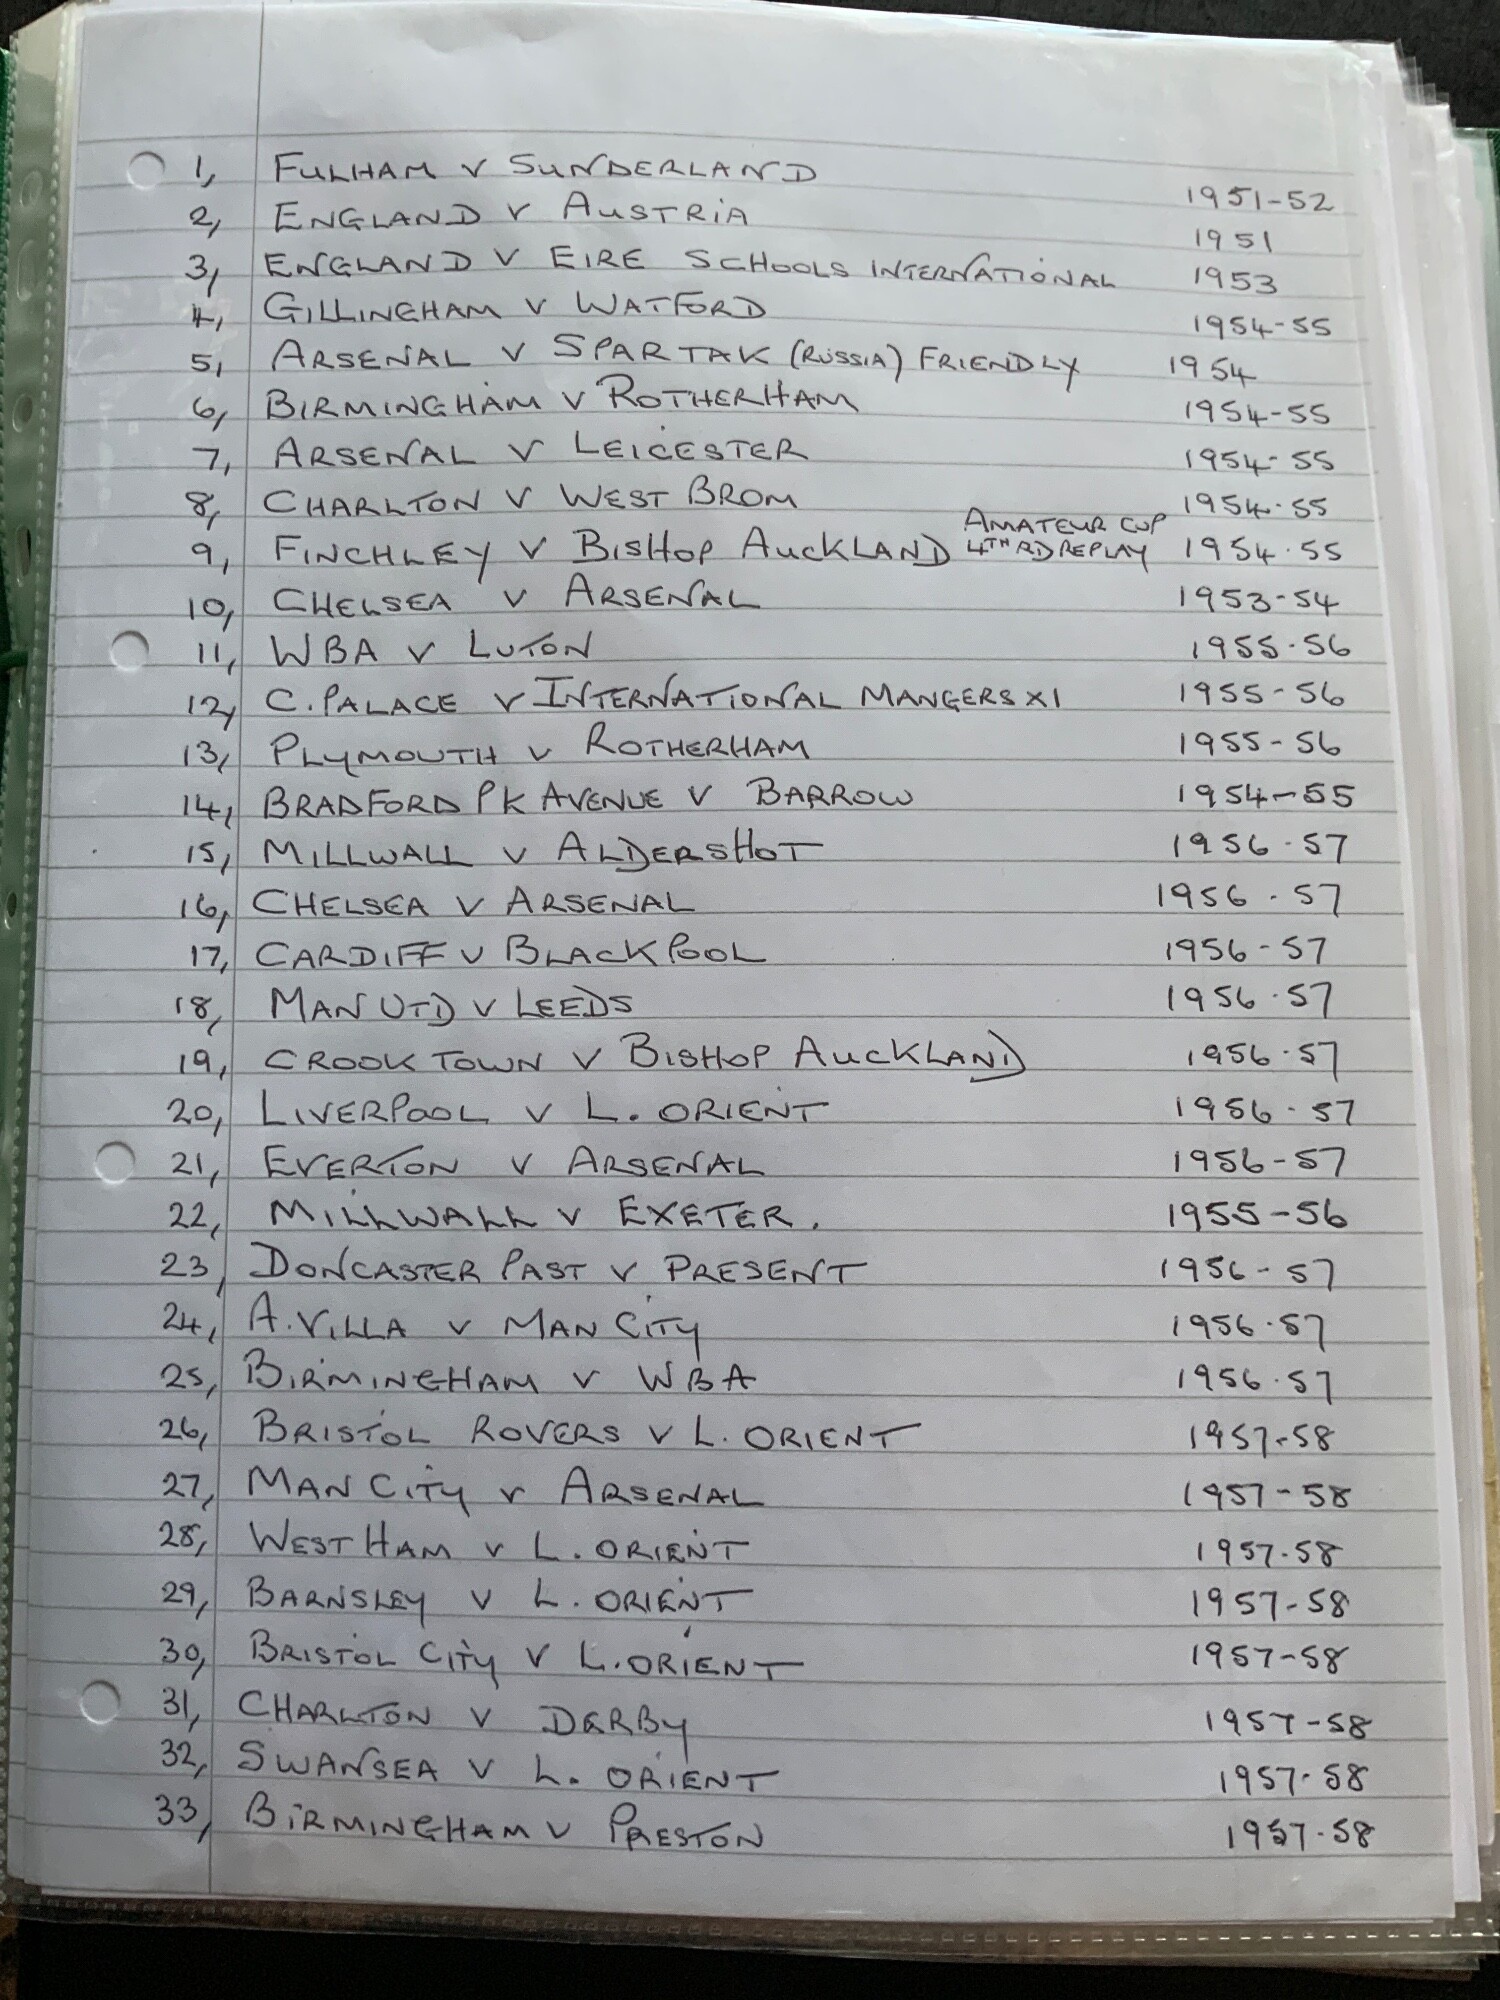 1, FULHAM V SUNDERLAND 1951-52
2, ENGLAND V AUSTRIA 1951
3, ENGLAND V EIRE SCHOOLS INTERNATIONAL 1953
4, GILLINGHAM V WATFORD 1954-55
5, ARSENAL V SPARTAK (RUSSIA) FRIENDLY 1954
6, BIRMINGHAM V ROTHERHAM 1954-55
7, ARSENAL V LEICESTER 1954-55
8, CHARLTON V WEST BROM 1954.55
9, FINCHLEY V BISHOP AUCKLAND AMATEUR CUP 4TH RD REPLAY 1954.55
10, CHELSEA V ARSENAL 1953-54
11, WBA V LUTON 1955.56
12, C. PALACE V INTERNATIONAL MANGERS XI 1955-56
13, PLYMOUTH V ROTHERHAM 1955-56
14, BRADFORD PK AVENUE V BARROW 1954-55
15, MILLWALL V ALDERSHOT 1956.57
16, CHELSEA V ARSENAL 1956.57
17, CARDIFF V BLACKPOOL 1956-57
18, MAN UTD V LEEDS 1956.57
19, CROOK TOWN V BISHOP AUCKLAND 1956.57
20, LIVERPOOL V L. ORIENT 1956-57
21, EVERTON V ARSENAL 1956-57
22, MILLWALL V EXETER. 1955-56
23, DONCASTER PAST V PRESENT 1956-57
24, A. VILLA V MAN CITY 1956.57
25, BIRMINGHAM V WBA 1956.57
26, BRISTOL ROVERS V L. ORIENT 1957-58
27, MAN CITY V ARSENAL 1957-58
28, WEST HAM V L. ORIENT 1957.58
29, BARNSLEY V L. ORIENT 1957-58
30, BRISTOL CITY V L. ORIENT 1957-58
31, CHARLTON V DERBY 1957-58
32, SWANSEA V L. ORIENT 1957.58
33, BIRMINGHAM V PRESTON 1957.58